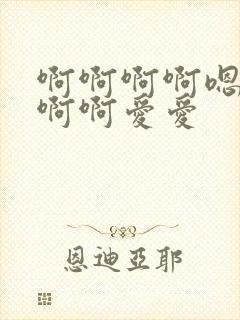 啊啊啊啊嗯
啊啊爱爱
恩迪亞耶